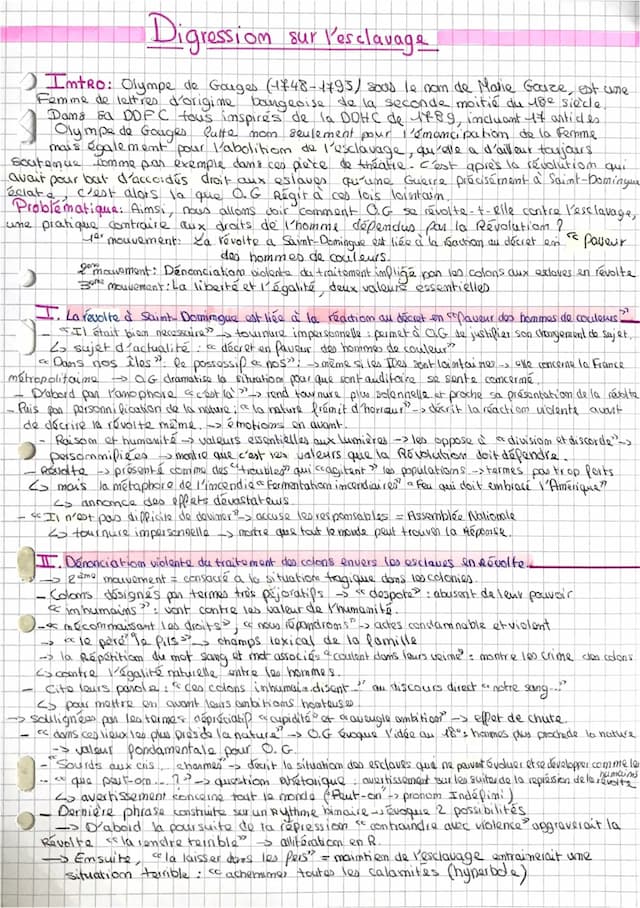 Digression sur l'esclavage
Intro: Olympe de Gouges (1748-1793) sous le nom de Marie Gouze, est une
Femme de lettres d'origine bourgeoise de la seconde moitié du 18e siècle.
Dans sa DDFC tous inspirés de la DDHC de 1789, incluant 17 articles
Olympe de Gouges lutte non seulement pour l'émancipation de la femme
mais également pour l'abolition de l'esclavage, qu'elle a d'ailleur toujours
soutenue comme par exemple dans ces pièce de théâtre. C'est après la révolution qui
avait pour but d'accordés droit aux eslaves qu'une Guerre précisément à Saint-Domingue
éclate, c'est alors la que O.G Régit à ces lois lointain.
Problématique: Ainsi, nous allons voir comment O.G se révolte-t-elle contre l'esclavage,
une pratique contraire aux droits de l'homme dépendus par la Révolution?
1er mouvement: La révolte à Saint-Domingue est liée à la réaction au décret en "faveur
des hommes de couleurs.
2ème mouvement: Dénonciation violente du traitement infligé par les colons aux eslaves en révolte
3ème mouvement: La liberté et l'égalité, deux valeurs essentielles
I. La révolte à Saint-Domingue est liée à la réaction au décret en "faveur des hommes de couleurs"
- "Il était bien nécessaire" → tournure impersonnelle: permet à O.G de justifier son changement de sujet.
↳ sujet d'actualité: "décret en faveur des hommes de couleur"
"Dans nos îles": le possessif "nos": → même si les îles sont lointaines → elle concerne la France
métropolitaine → O.G dramatise la situation pour que son auditaire se sente concerné.
- D'abord par l'anaphore "c'est là" → rend tournure plus solennelle et proche sa présentation de la révolte
- Puis par personnification de la nature: "la nature frémit d'horreur" → décrit la réaction violente avant
de décrire la révolte même. → émotions en avant.
- Raison et humanité → valeurs essentielles aux lumières → les oppose à "division et discorde" →
personnifiées → montre que c'est ses valeurs que la Révolution doit défendre.
- Révolte → présenté comme des "troubles" qui "agitent" les populations → termes pas trop forts
↳ mais la métaphore de l'incendie "Fermentation incendiaires" "Feu qui doit embrasé l'Amérique"
↳ annonce des effets dévastateurs
- "Il n'est pas difficile de deviner" → accuse les responsables = Assemblée Nationale
↳ tournure impersonnelle → montre que tout le monde peut trouver la réponse.
II. Dénonciation violente du traitement des colons envers les esclaves en Révolte.
→ 2ème mouvement = consacré à la situation tragique dans les colonies.
- Colons désignés par termes très péjoratifs → "despote": abusent de leur pouvoir
"inhumains": vont contre les valeur de l'humanité.
- "méconnaissant les droits", "nous répondrons" → actes condamnable et violent
→ "le père" "le fils" → champs lexical de la famille
→ la Répétition du mot sang et mot associés "coulent dans leurs veine": montre les crime des colons
↳ contre l'égalité naturelle entre les hommes.
- Cite leurs parole: "ces colons inhumain disent..." au discours direct "notre sang..."
↳ pour mettre en avant leurs ambitions honteuses
→ soulignées par les termes dépréciatif "cupidité" et "aveugle ambition" → effet de chute.
- "dans ces lieux les plus près de la nature" → O.G évoque l'idée au 18e: hommes plus proche de la nature
→ valeur fondamentale pour O.G.
- "Sourds aux cris... charmes" → décrit la situation des esclaves que ne peuvent évoluer et se développer comme les
humains
- "que peut-on...?" → question rhétorique: avertissement sur les suites de la représsion de la révolte
↳ avertissement concerne tout le monde ("Peut-on" → pronom Indéfini)
- Dernière phrase construite sur un rythme binaire → évoque 2 possibilités
→ D'abord la poursuite de la répression "contraindre avec violence" aggraverait la
Révolte "la rendre terrible" → allitération en R.
→ Ensuite, "la laisser dans les fers" = maintien de l'esclavage entrainerait une
situation terrible: "acheminer toutes les calamités (hyperbole)